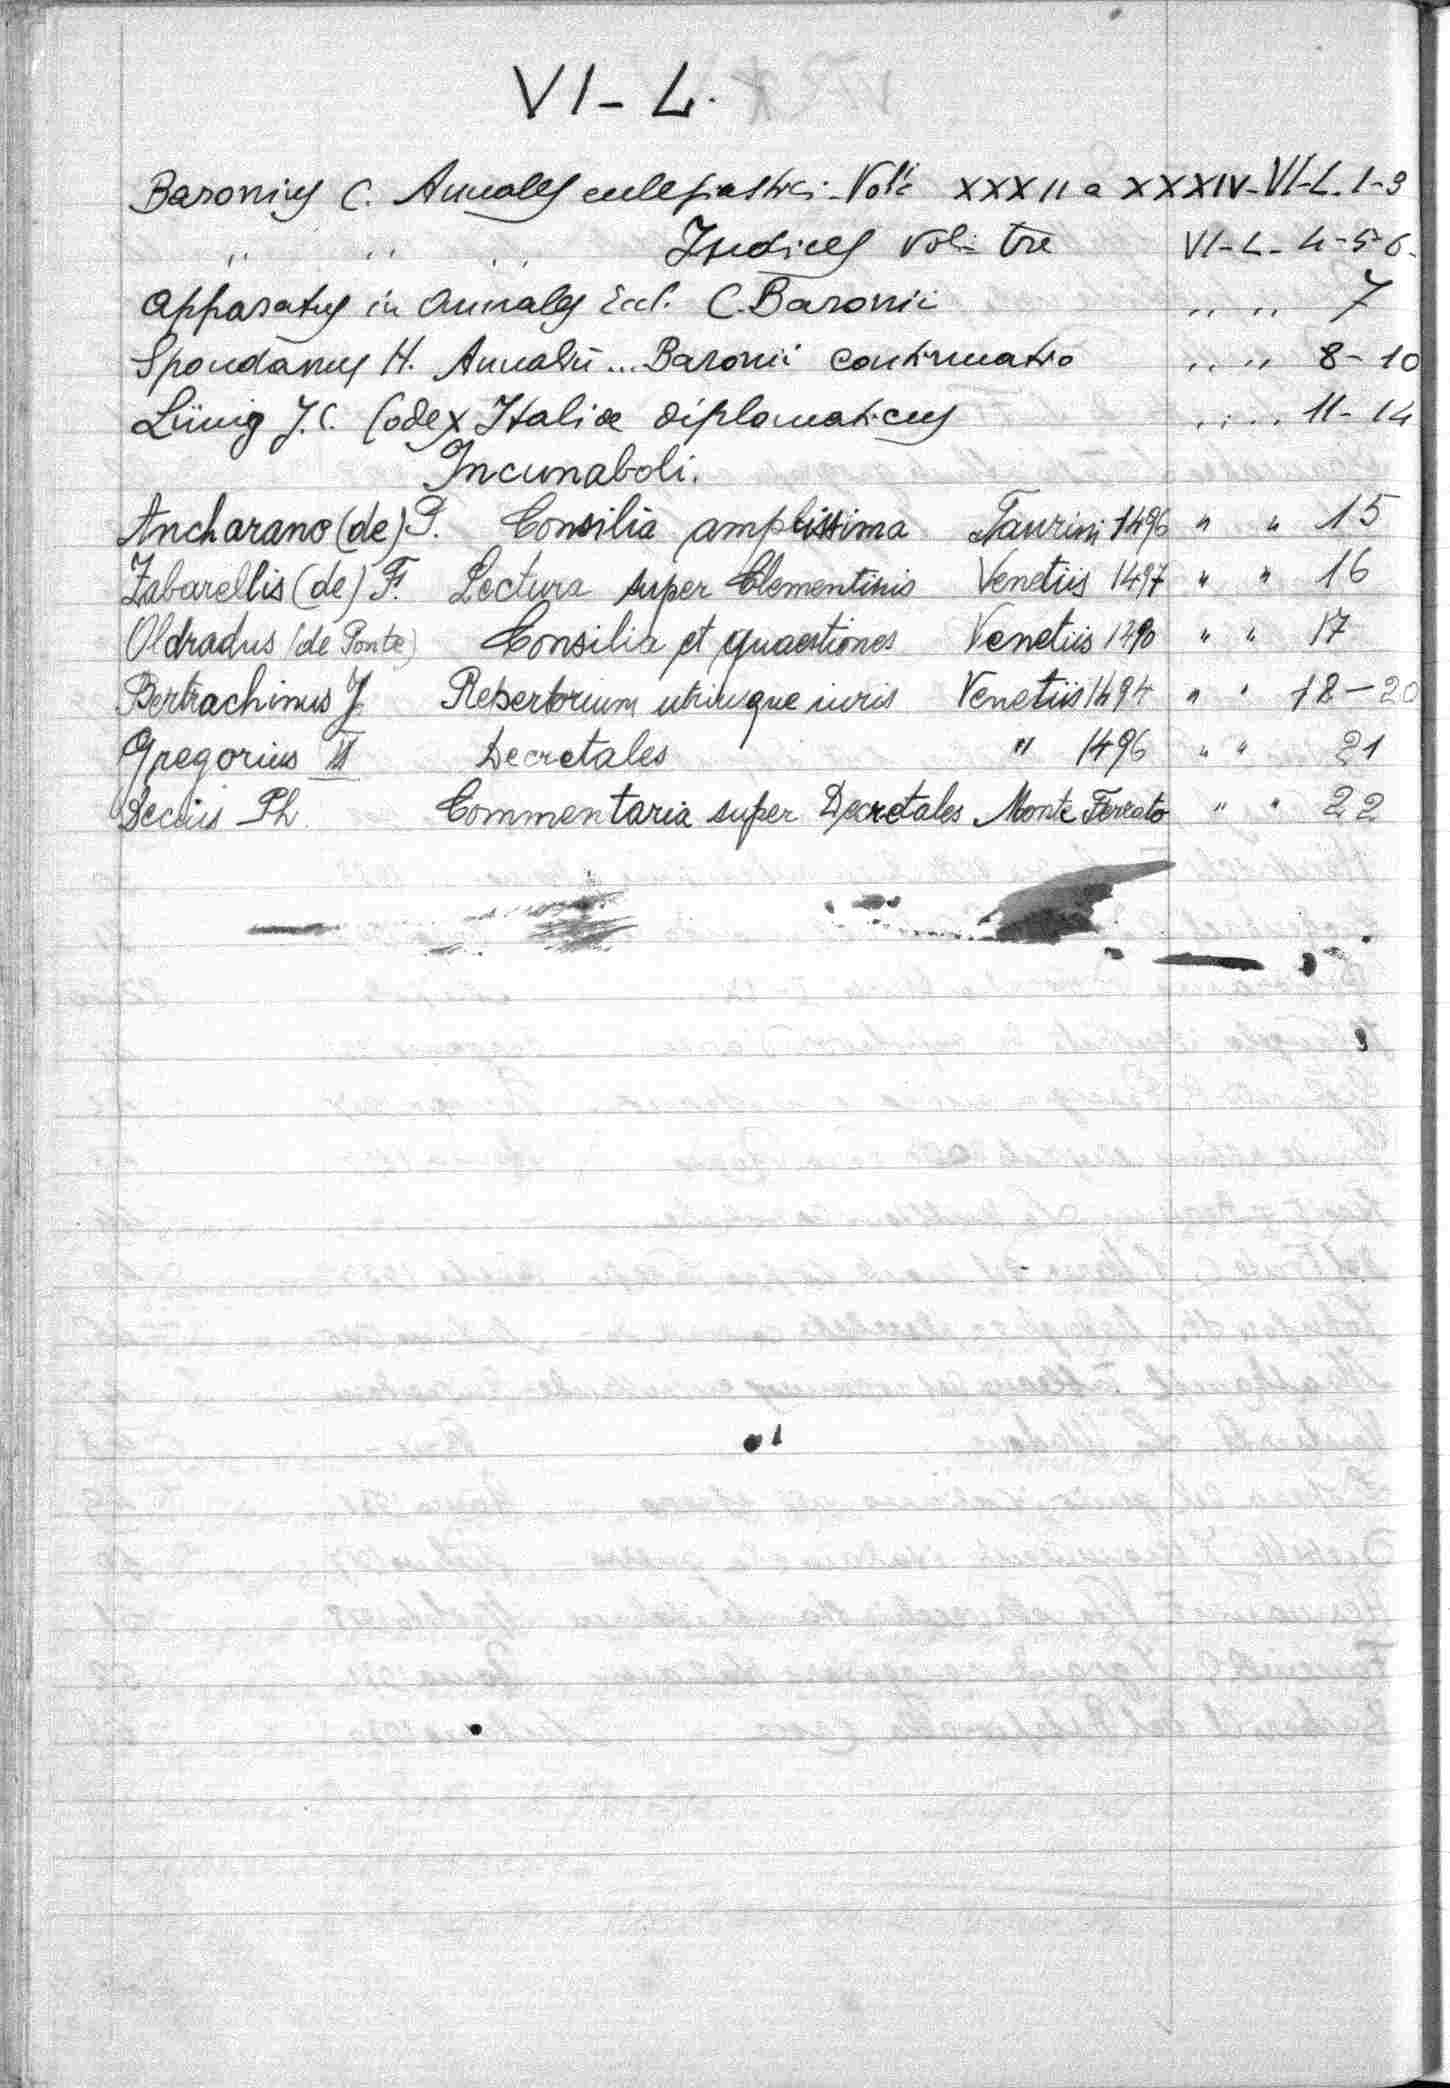 VI - L.
Baronius C. Annales ecclesiastici - Voli XXXII a XXXIV - VI-L. 1-3
" " " Indices vol. tre VI-L- 4-5-6-
Apparatus in Annales Eccl. C. Baronii " " 7
Spondanus H. Annaliū ... Baronii continuatio " " 8-10
Lünig J.C. Codex Italiae diplomaticus " " 11-14
Incunaboli.
Ancharano (de) P. Consilia amplissima Taurini 1496 " " 15
Zabarellis (de) F. Lectura super Clementinis Venetiis 1497 " " 16
Oldradus (de Ponte) Consilia et quaestiones Venetiis 1490 " " 17
Bertrachinus J. Repertorium utriusque iuris Venetiis 1494 " " 18-20
Gregorius Decretales " 1496 " " 21
Decius Ph. Commentaria super Decretales Monte Ferrato " " 22